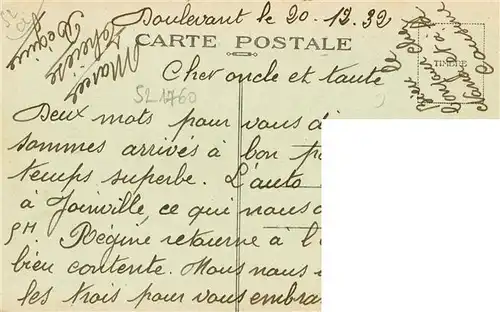 Doulevant le 20.12.32
CARTE POSTALE
Cher oncle et tante
SL1760
Deux mots pour vous di
sommes arrivés à bon po
temps superbe. L'auto
à Joinville, ce qui nous a
9H. Régine retourne à l'é
bien contente. Nous nous
les trois pour vous embra
Marcel
Thérèse
Régine
TIMBRE